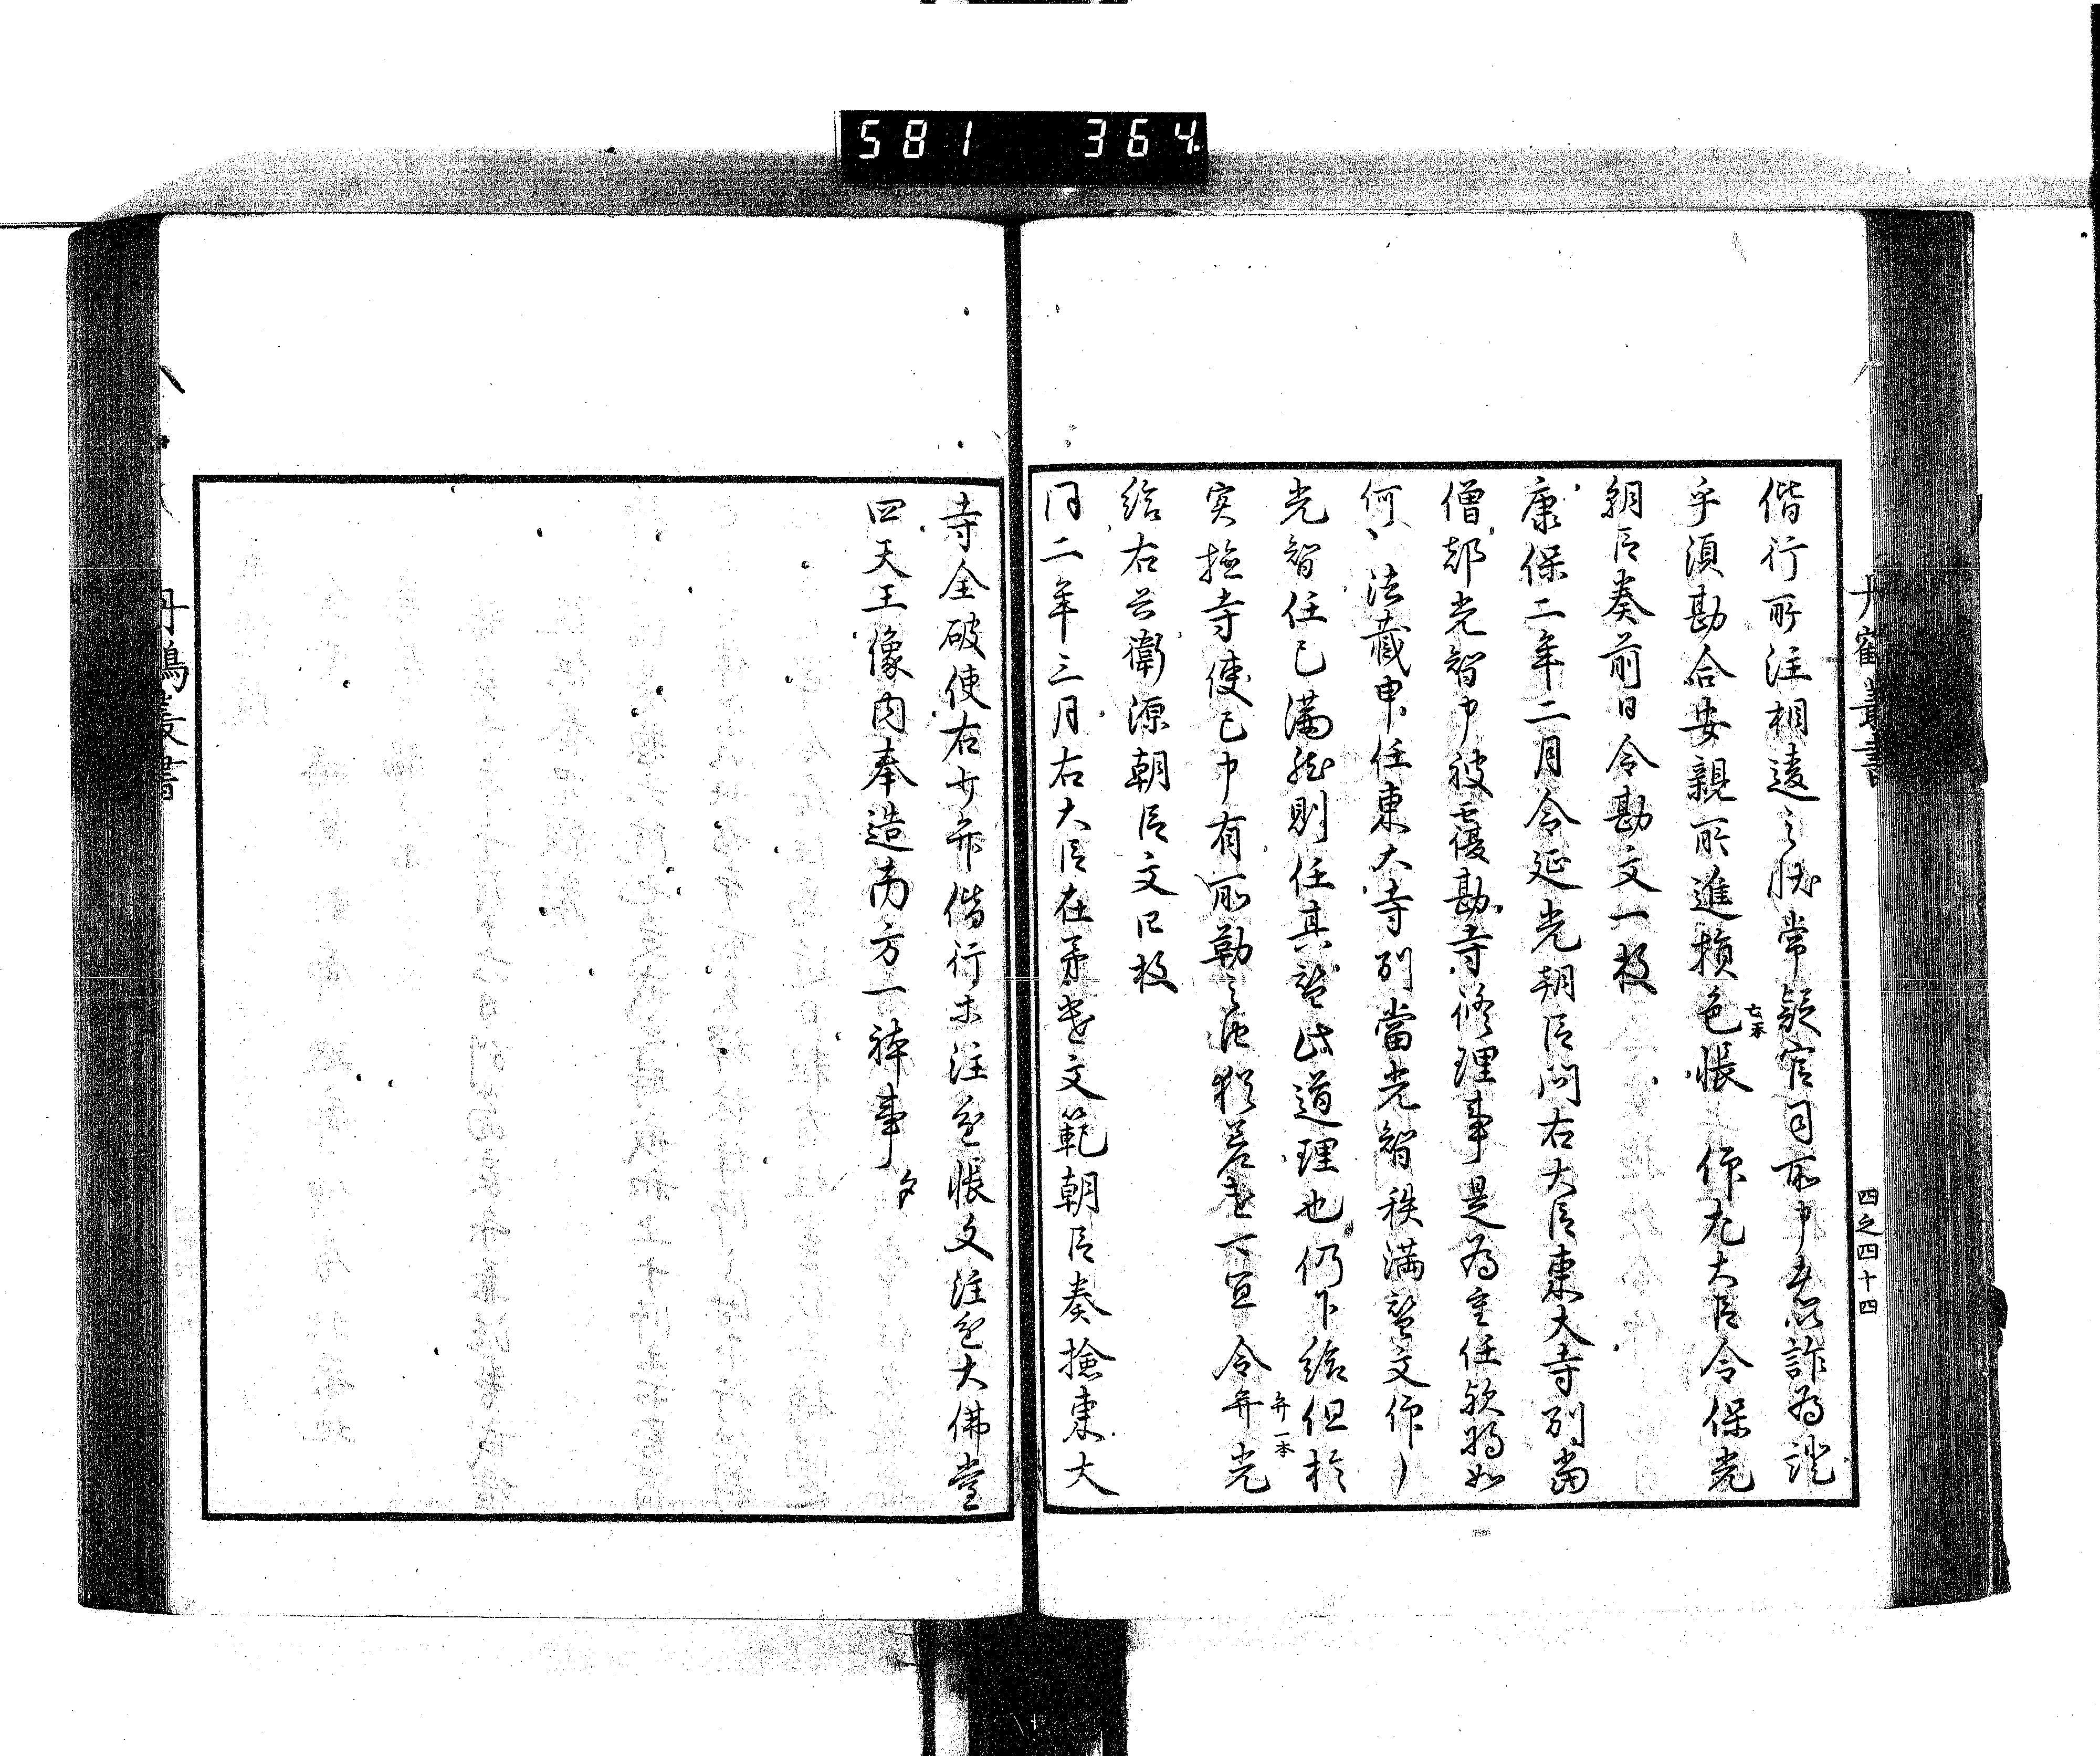 581 364
丹鶴叢書
四之四十四
偕行所注相違之状常疑官司所申者以詐為證
乎須勘合安親所進損色帳 作左大臣令保光
七本
朝臣奏前日令勘文一枚
康保二年二月令延光朝臣問右大臣東大寺別當
僧都光智申被優勘寺修理事是為重任欤将如
何、法蔵申任東大寺別當光智秩満替文作
光智任已満然則任其替此道理也仍下給但於
弁一本
実撿寺使已申有所勤之由猶若遣一宣令弁光
給右兵衛源朝臣文已枚
同二年三月右大臣在茅遣文範朝臣奏撿東大
寺全破使右少弁偕行等注色帳文注色大佛堂
四天王像内奉造南方一躰事
丹鶴叢書